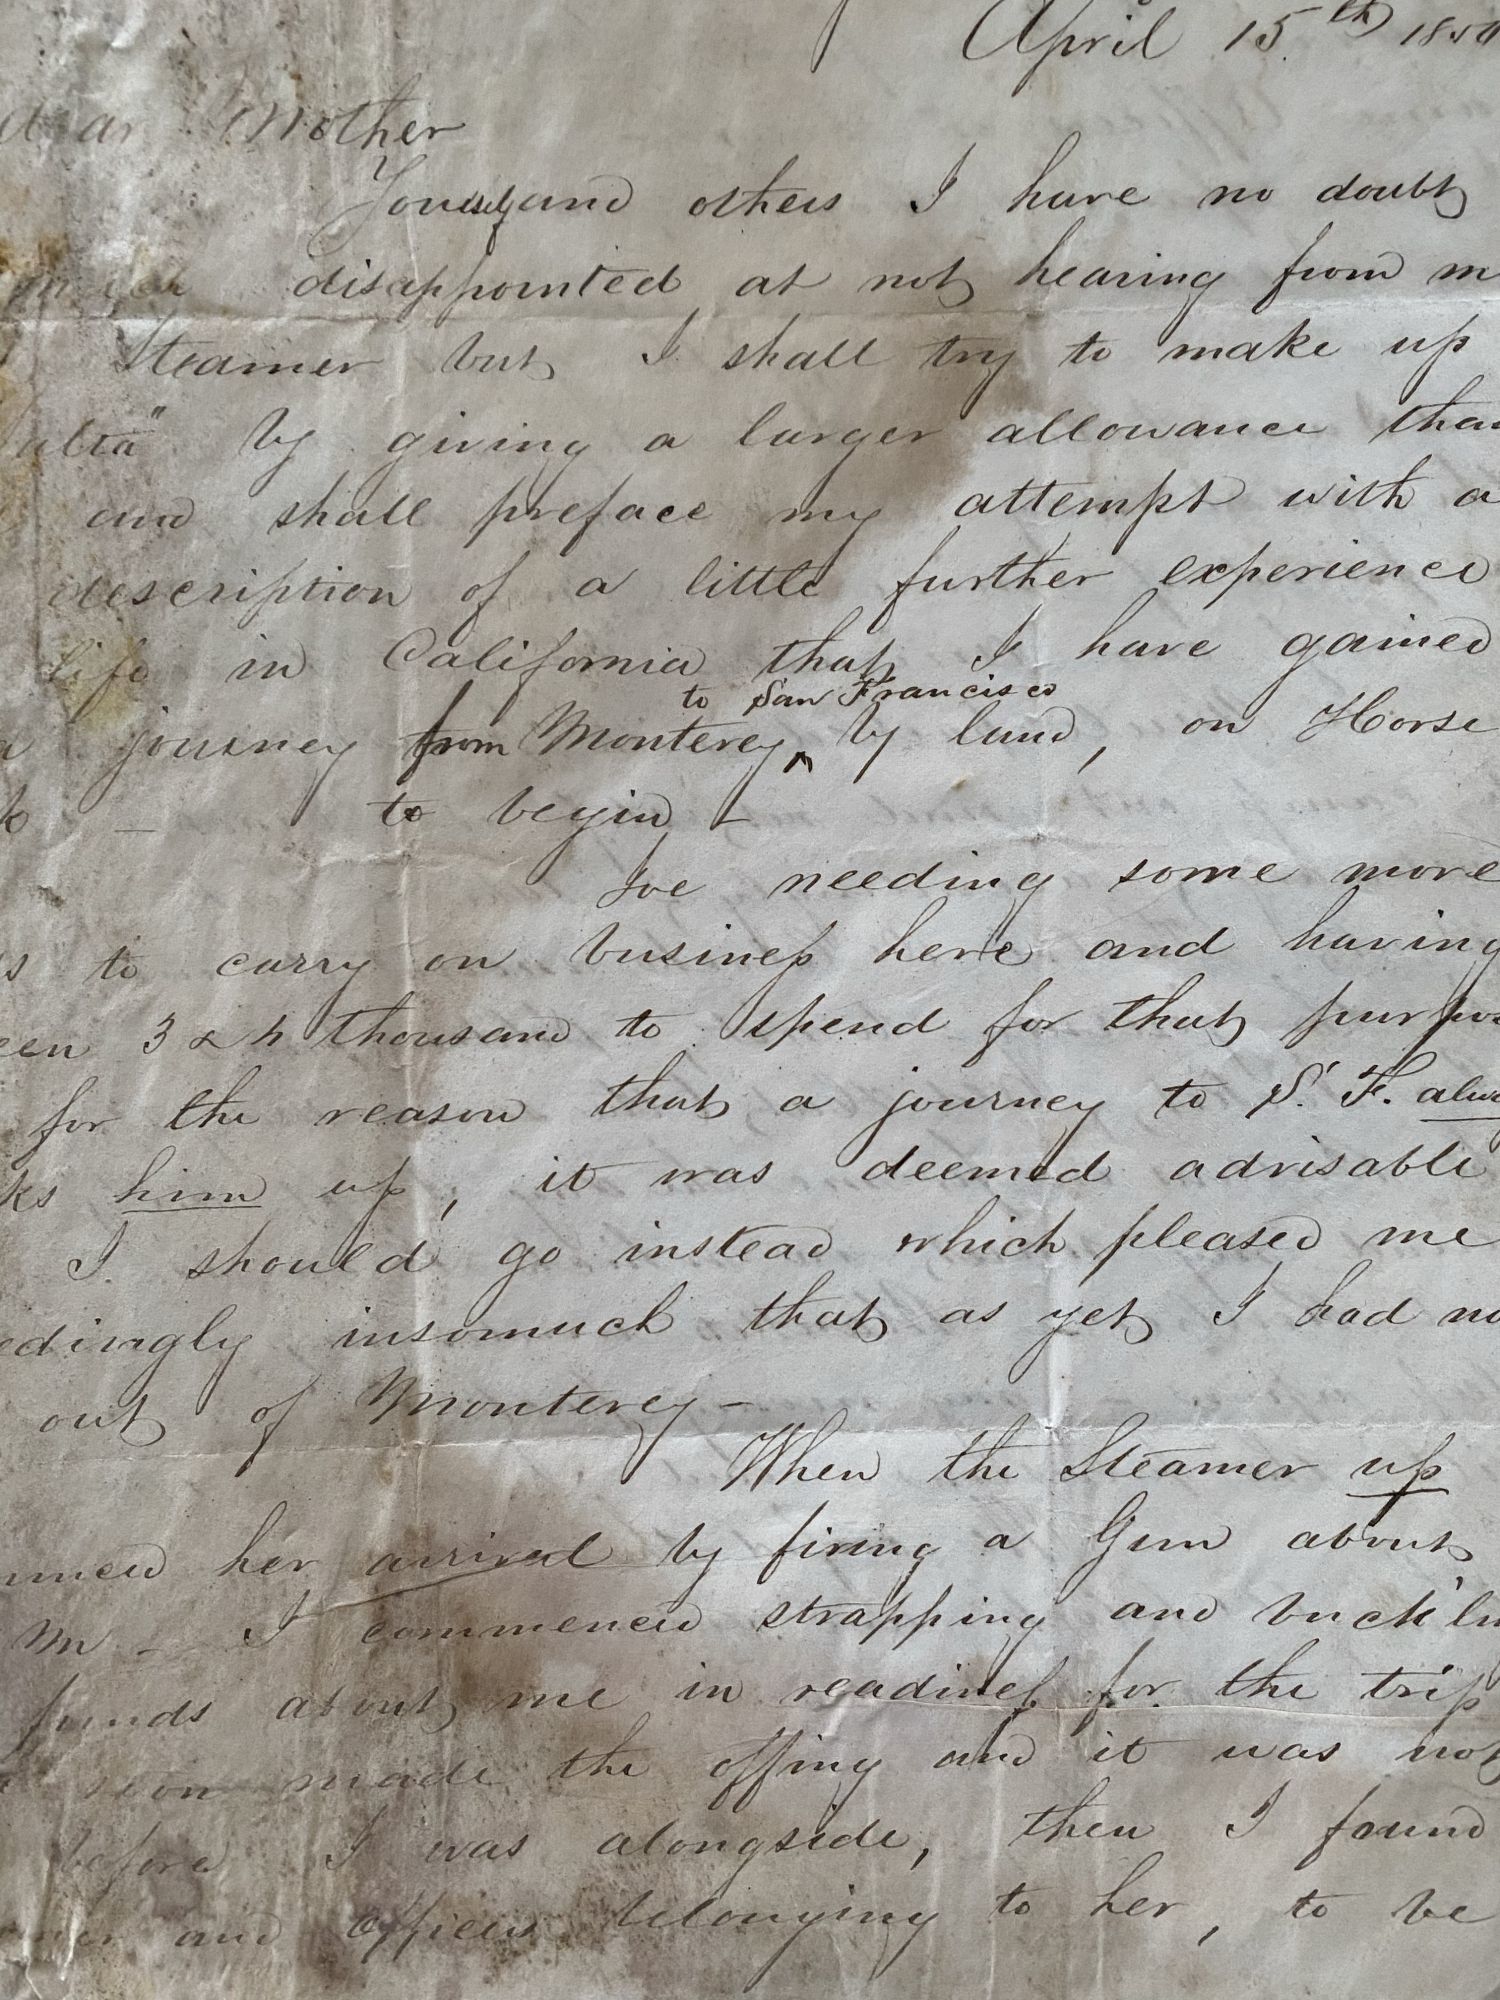 April 15th 185
Dear Mother
Yourself and others I have no doubt
disappointed at not hearing from m
Steamer but I shall try to make up
alta" by giving a larger allowance than
and shall preface my attempt with a
description of a little further experience
life in California that I have gained
to San Francisco
a journey from Monterey ^ by land, on Horse
k — to begin —
Joe needing some more
s to carry on business here and having
een 3 & 4 thousand to spend for that purpos
for the reason that a journey to S. F. alwa
ks him up, it was deemed advisable
I should go instead which pleased me
edingly insomuch that as yet I had no
out of Monterey —
When the Steamer up
unced her arrival by firing a Gun about
M — I commenced strapping and buck'lin
funds about me in readiness for the trip
soon made the offing and it was not
before I was alongside, then I found
and officers belonging to her, to be